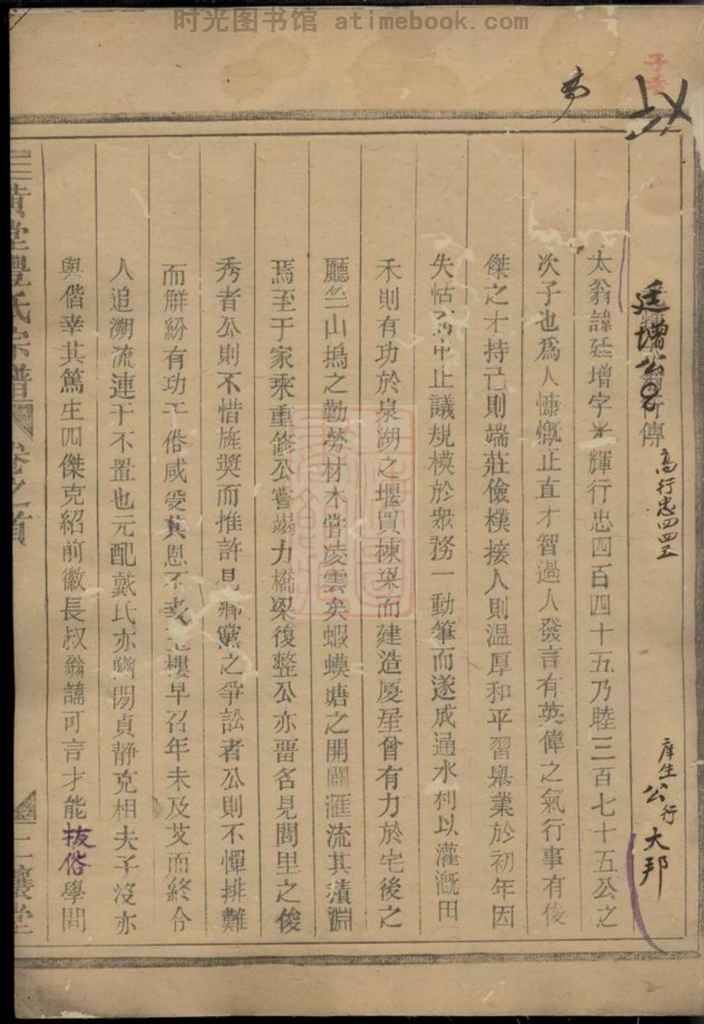 时光图书馆 atimebook.com
廷增公 傳
高行忠四四五
庠生 公行 大邦
太翁諱廷增字 輝行忠四百四十五乃睦三百七十五公之
次子也爲人慷慨正直才智過人發言有英偉之氣行事有俊
傑之才持己則端莊儉樸接人則溫厚和平習舉業於初年因
失怙 中止議規模於衆務一動筆而遂成通水利以灌漑田
禾則有功於泉湖之堰買棟梁而建造廈屋曾有力於宅後之
廳竺山塢之勤勞材木嘗凌雲矣蝦蟆塘之開闢滙流其積淵
焉至于家乘重修公嘗竭力橋梁復整公亦畱名見閭里之俊
秀者公則不惜旌奬而推許見鄉黨之爭訟者公則不憚排難
而解紛有功 俗咸愛其恩不 樓早召年未及艾而終令
人追溯流連于不置也元配戴氏亦幽閒貞静克相夫子沒亦
與偕幸其篤生四傑克紹前徽長叔翁諱可言才能拔俗學問
三 黄堂豊氏宗譜 卷之首
三 讓堂